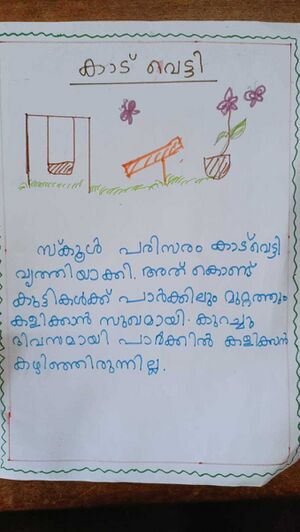 കാട് വെട്ടി
സ്കൂൾ പരിസരം കാട്വെട്ടി
വൃത്തിയാക്കി. അത് കൊണ്ട്
കുട്ടികൾക്ക് പാർക്കിലും മുറ്റത്തും
കളിക്കാൻ സുഖമായി. കുറച്ചു
ദിവസമായി പാർക്കിൽ കളിക്കാൻ
കഴിഞ്ഞിരുന്നില്ല.